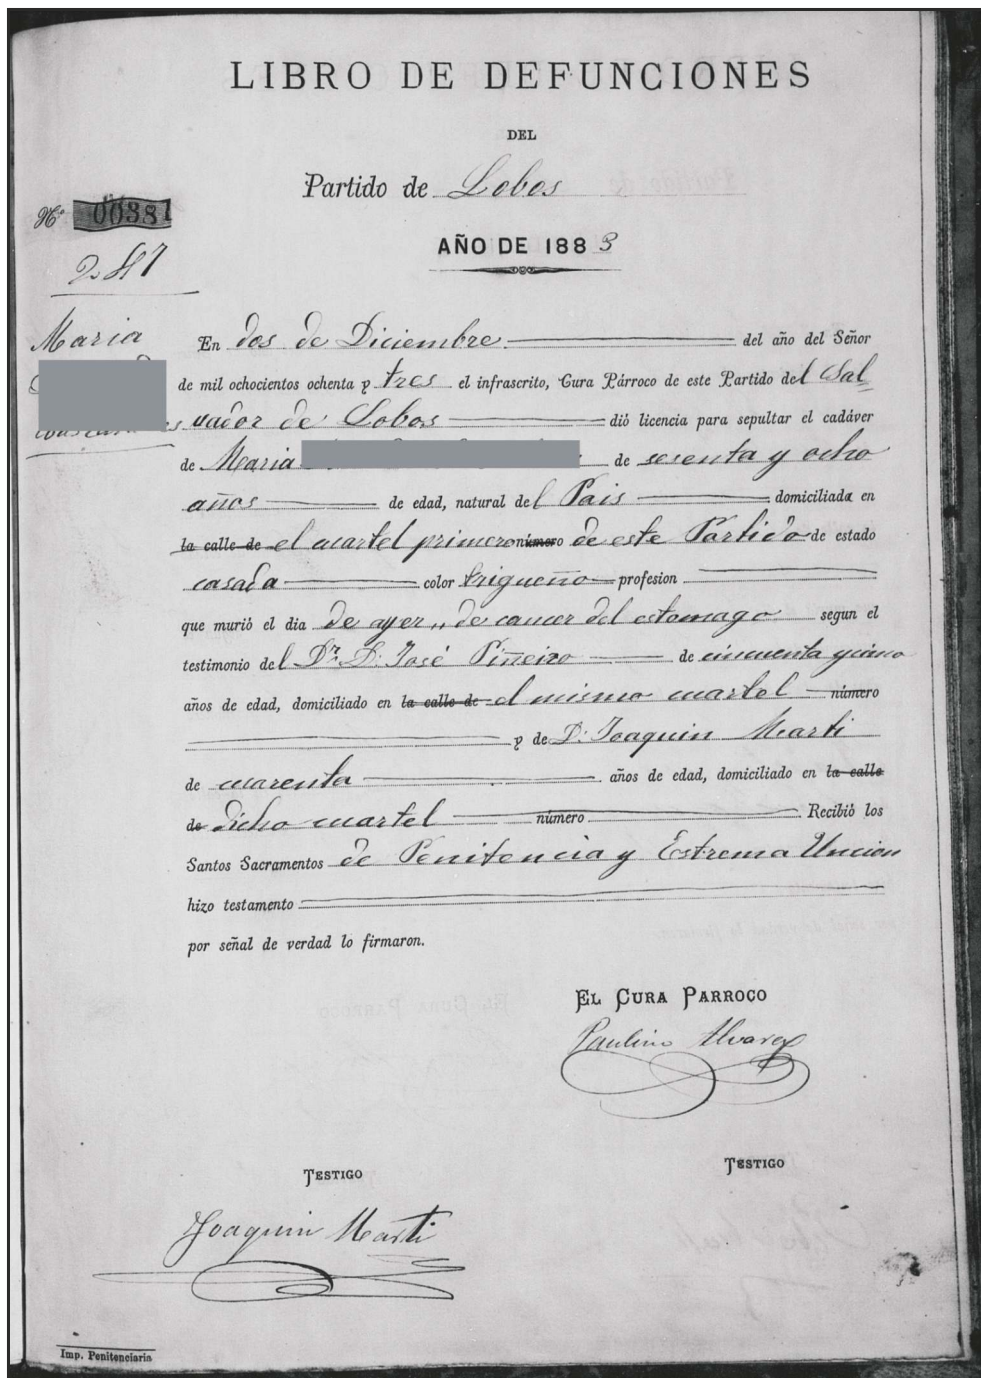 LIBRO DE DEFUNCIONES
DEL
Partido de Lobos
Nº 00381
AÑO DE 1883
247
Maria
En dos de Diciembre del año del Señor
de mil ochocientos ochenta y tres el infrascrito, Cura Párroco de este Partido del Sal
vador de Lobos dió licencia para sepultar el cadáver
de Maria de sesenta y ocho
años de edad, natural del Pais domiciliada en
la calle de el cuartel primero número de este Partido de estado
casada color trigueño profesion
que murió el dia de ayer,, de cancer del estomago segun el
testimonio del Dr. D. José Piñeiro de cincuenta y cinco
años de edad, domiciliado en la calle de el mismo cuartel número
y de D. Joaquin Marti
de cuarenta años de edad, domiciliado en la calle
de dicho cuartel número Recibió los
Santos Sacramentos de Penitencia y Estrema Uncion
hizo testamento
por señal de verdad lo firmaron.
EL CURA PARROCO
Paulino Alvarez
TESTIGO
TESTIGO
Joaquin Marti
Imp. Penitenciaria